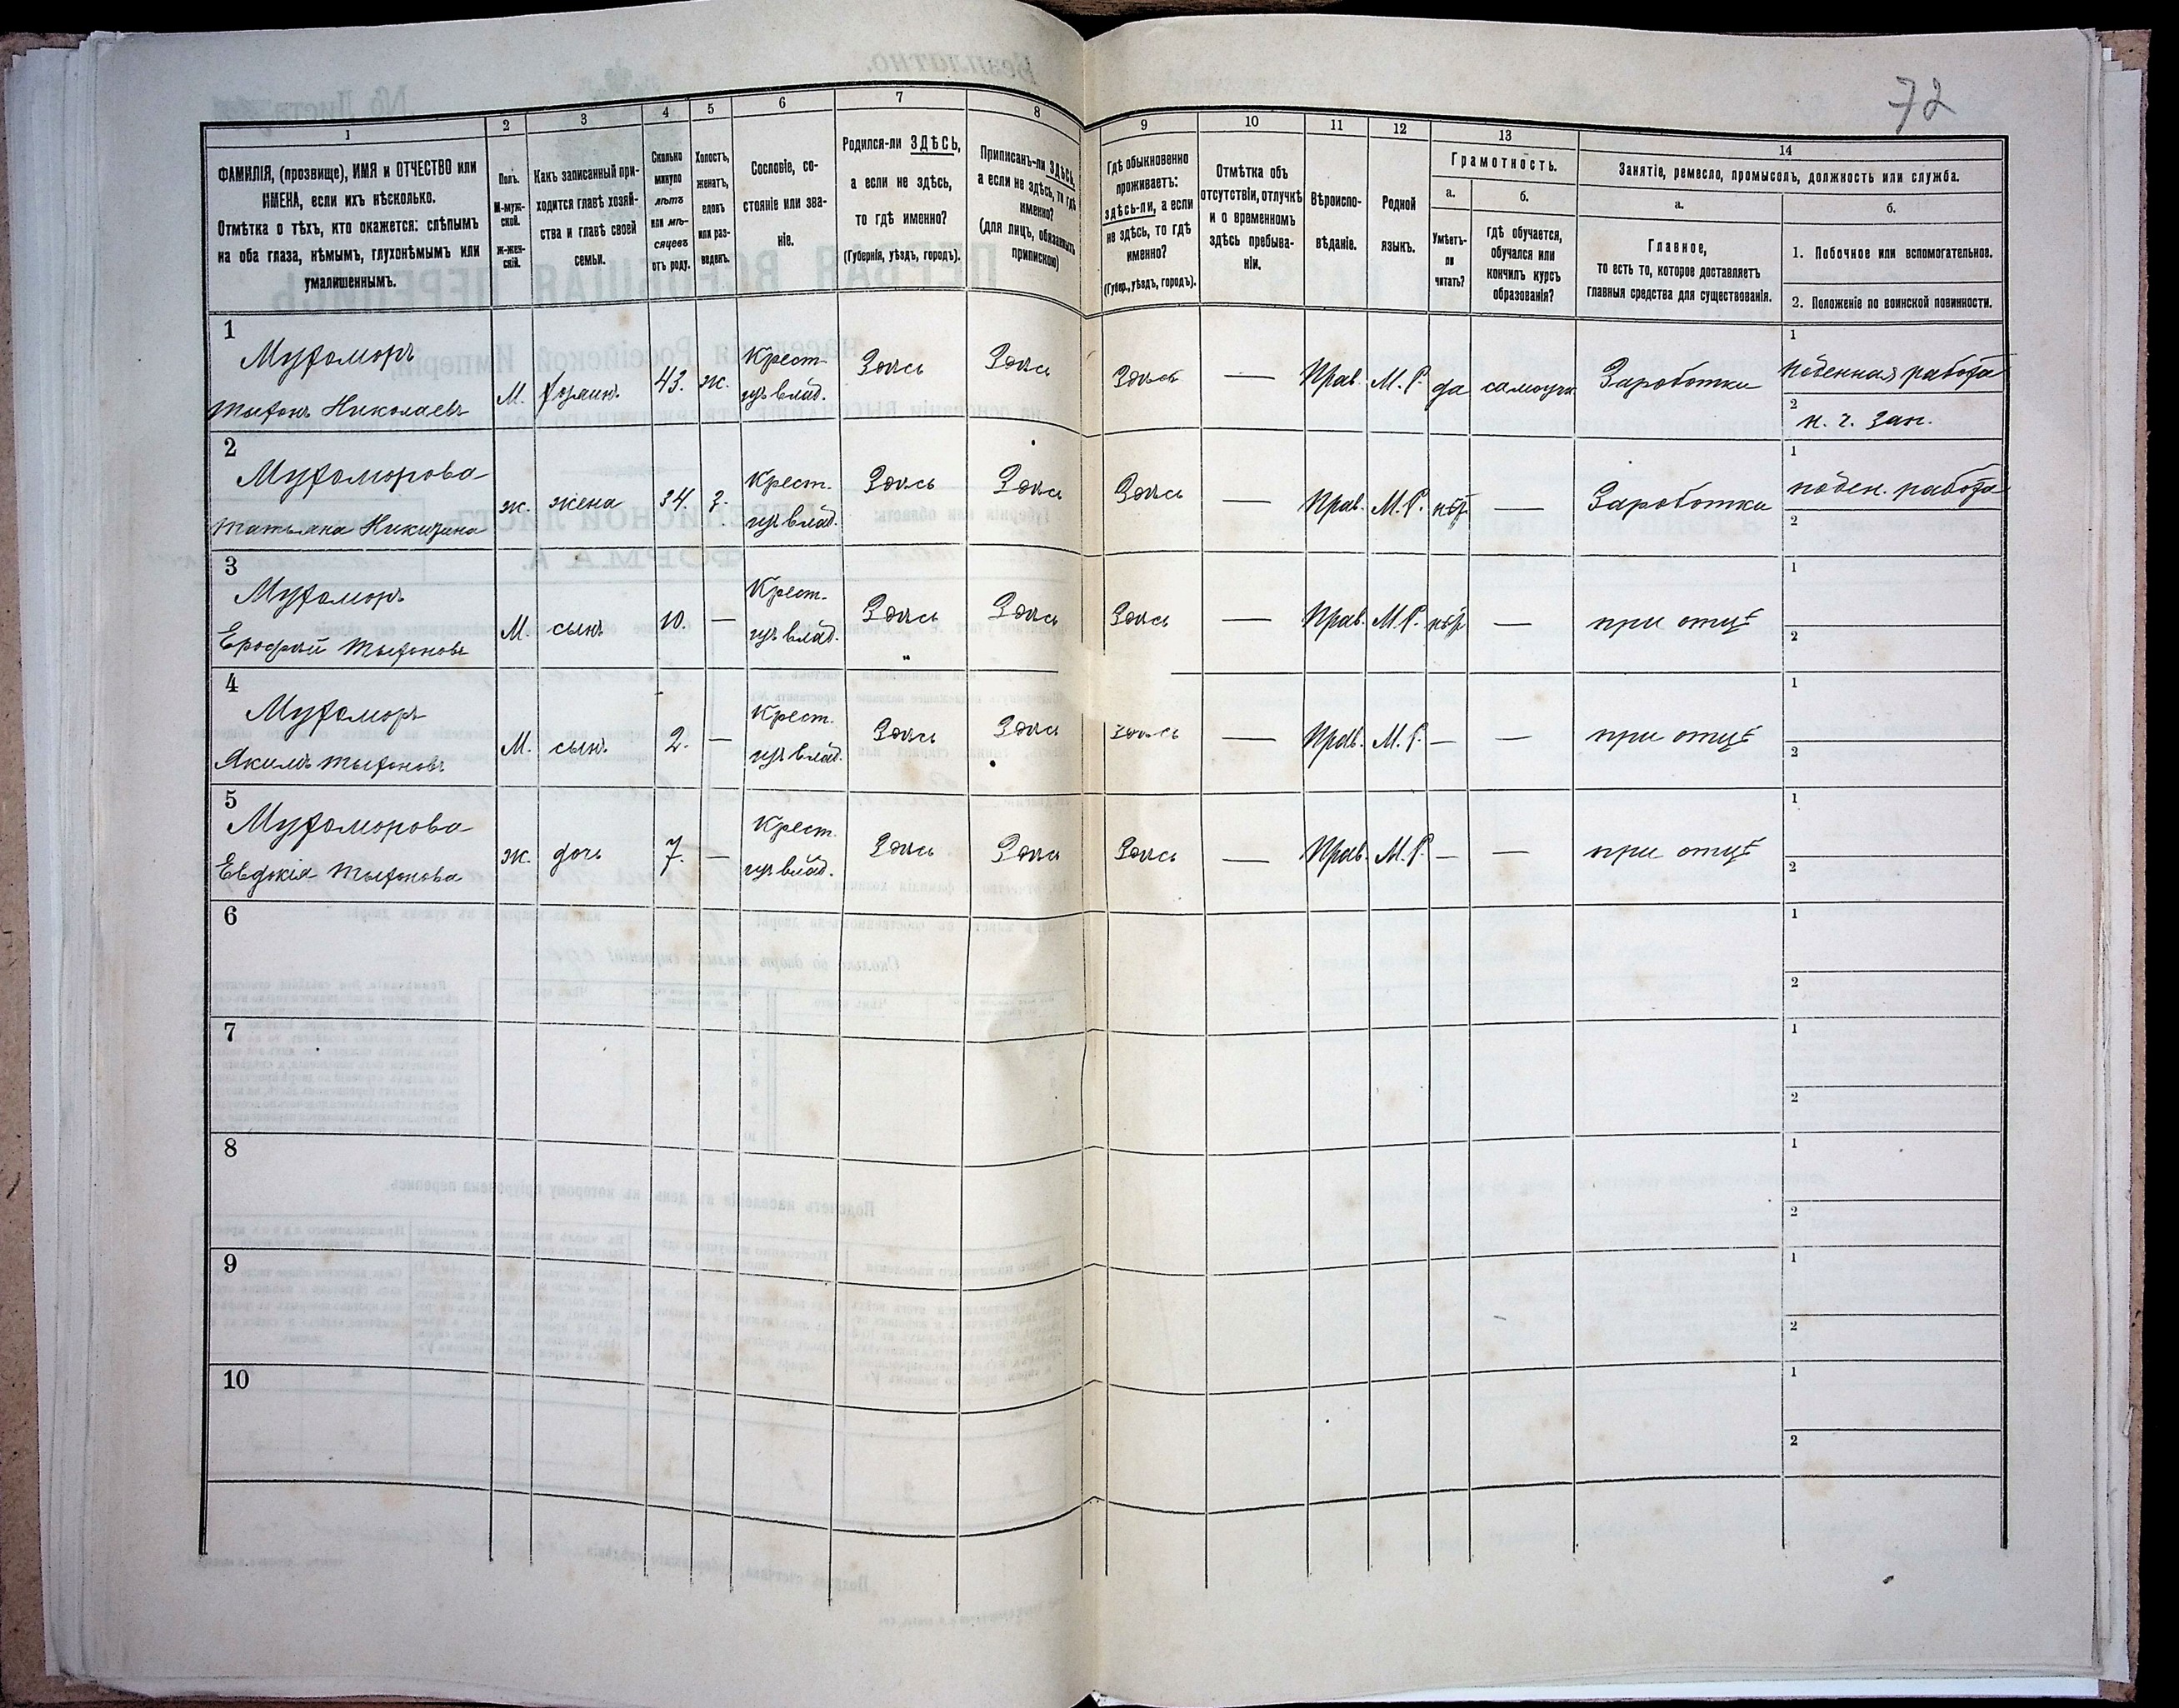 72
1
2
3
4
5
6
7
8
9
10
11
12
13
14
ФАМИЛІЯ, (прозвище), ИМЯ и ОТЧЕСТВО или
ИМЕНА, если ихъ нѣсколько.
Отмѣтка о тѣхъ, кто окажется: слѣпымъ
на оба глаза, нѣмымъ, глухонѣмымъ или
умалишеннымъ.
Полъ.
М-муж-
ской.
Ж-жен-
скій.
Какъ записанный при-
ходится главѣ хозяй-
ства и главѣ своей
семьи.
Сколько
минуло
лѣтъ
или мѣ-
сяцевъ
отъ роду.
Холостъ,
женатъ,
вдовъ
или раз-
веденъ.
Сословіе, со-
стояніе или зва-
ніе.
Родился-ли ЗДѢСЬ,
а если не здѣсь,
то гдѣ именно?
(Губернія, уѣздъ, городъ).
Приписанъ-ли ЗДѢСЬ,
а если не здѣсь, то гдѣ
именно?
(для лицъ, обязанныхъ
припискою)
Гдѣ обыкновенно
проживаетъ:
здѣсь-ли, а если
не здѣсь, то гдѣ
именно?
(Губер., уѣздъ, городъ).
Отмѣтка объ
отсутствіи, отлучкѣ
и о временномъ
здѣсь пребыва-
ніи.
Вѣроиспо-
вѣданіе.
Родной
языкъ.
Грамотность.
а.
Умѣетъ-
ли
читать?
б.
гдѣ обучается,
обучался или
кончилъ курсъ
образованія?
Занятіе, ремесло, промыселъ, должность или служба.
а.
Главное,
то есть то, которое доставляетъ
главныя средства для существованія.
б.
1. Побочное или вспомогательное.
2. Положеніе по воинской повинности.
1
Мухоморъ
Николаевъ
М.
43.
ж.
Крест.
изъ влад.
Здѣсь
Здѣсь
Здѣсь
—
Прав.
М. Р.
да
самоучк.
Заработки
1
поденная работа
2
2
Мухоморова
Татьяна Никитина
ж.
жена
34.
з.
Крест.
изъ влад.
Здѣсь
Здѣсь
Здѣсь
—
Прав.
М. Р.
нѣт
—
Заработки
1
поден. работа
2
3
Мухоморъ
Ерофѣй
М.
сынъ
10.
—
Крест.
изъ влад.
Здѣсь
Здѣсь
Здѣсь
—
Прав.
М. Р.
нѣт
—
при отцѣ
1
2
4
Мухоморъ
Якимъ
М.
сынъ
2.
—
Крест.
изъ влад.
Здѣсь
Здѣсь
Здѣсь
—
Прав.
М. Р.
—
—
при отцѣ
1
2
5
Мухоморова
Евдокія
ж.
дочь
7.
—
Крест.
изъ влад.
Здѣсь
Здѣсь
Здѣсь
—
Прав.
М. Р.
—
—
при отцѣ
1
2
6
1
2
7
1
2
8
1
2
9
1
2
10
1
2